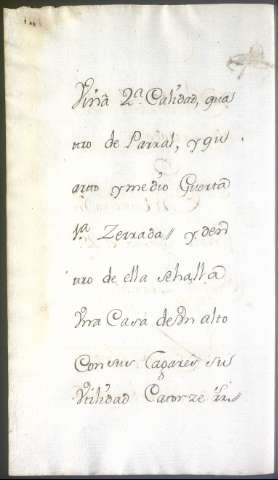 Viña 2ª Calidad, qua
tro de Parral, y qu
arto y medio Guerta
1ª Zerrada// y den
tro de ella se halla
Vna Casa de Vn alto
Con sus Lagares su
Vtilidad Catorze